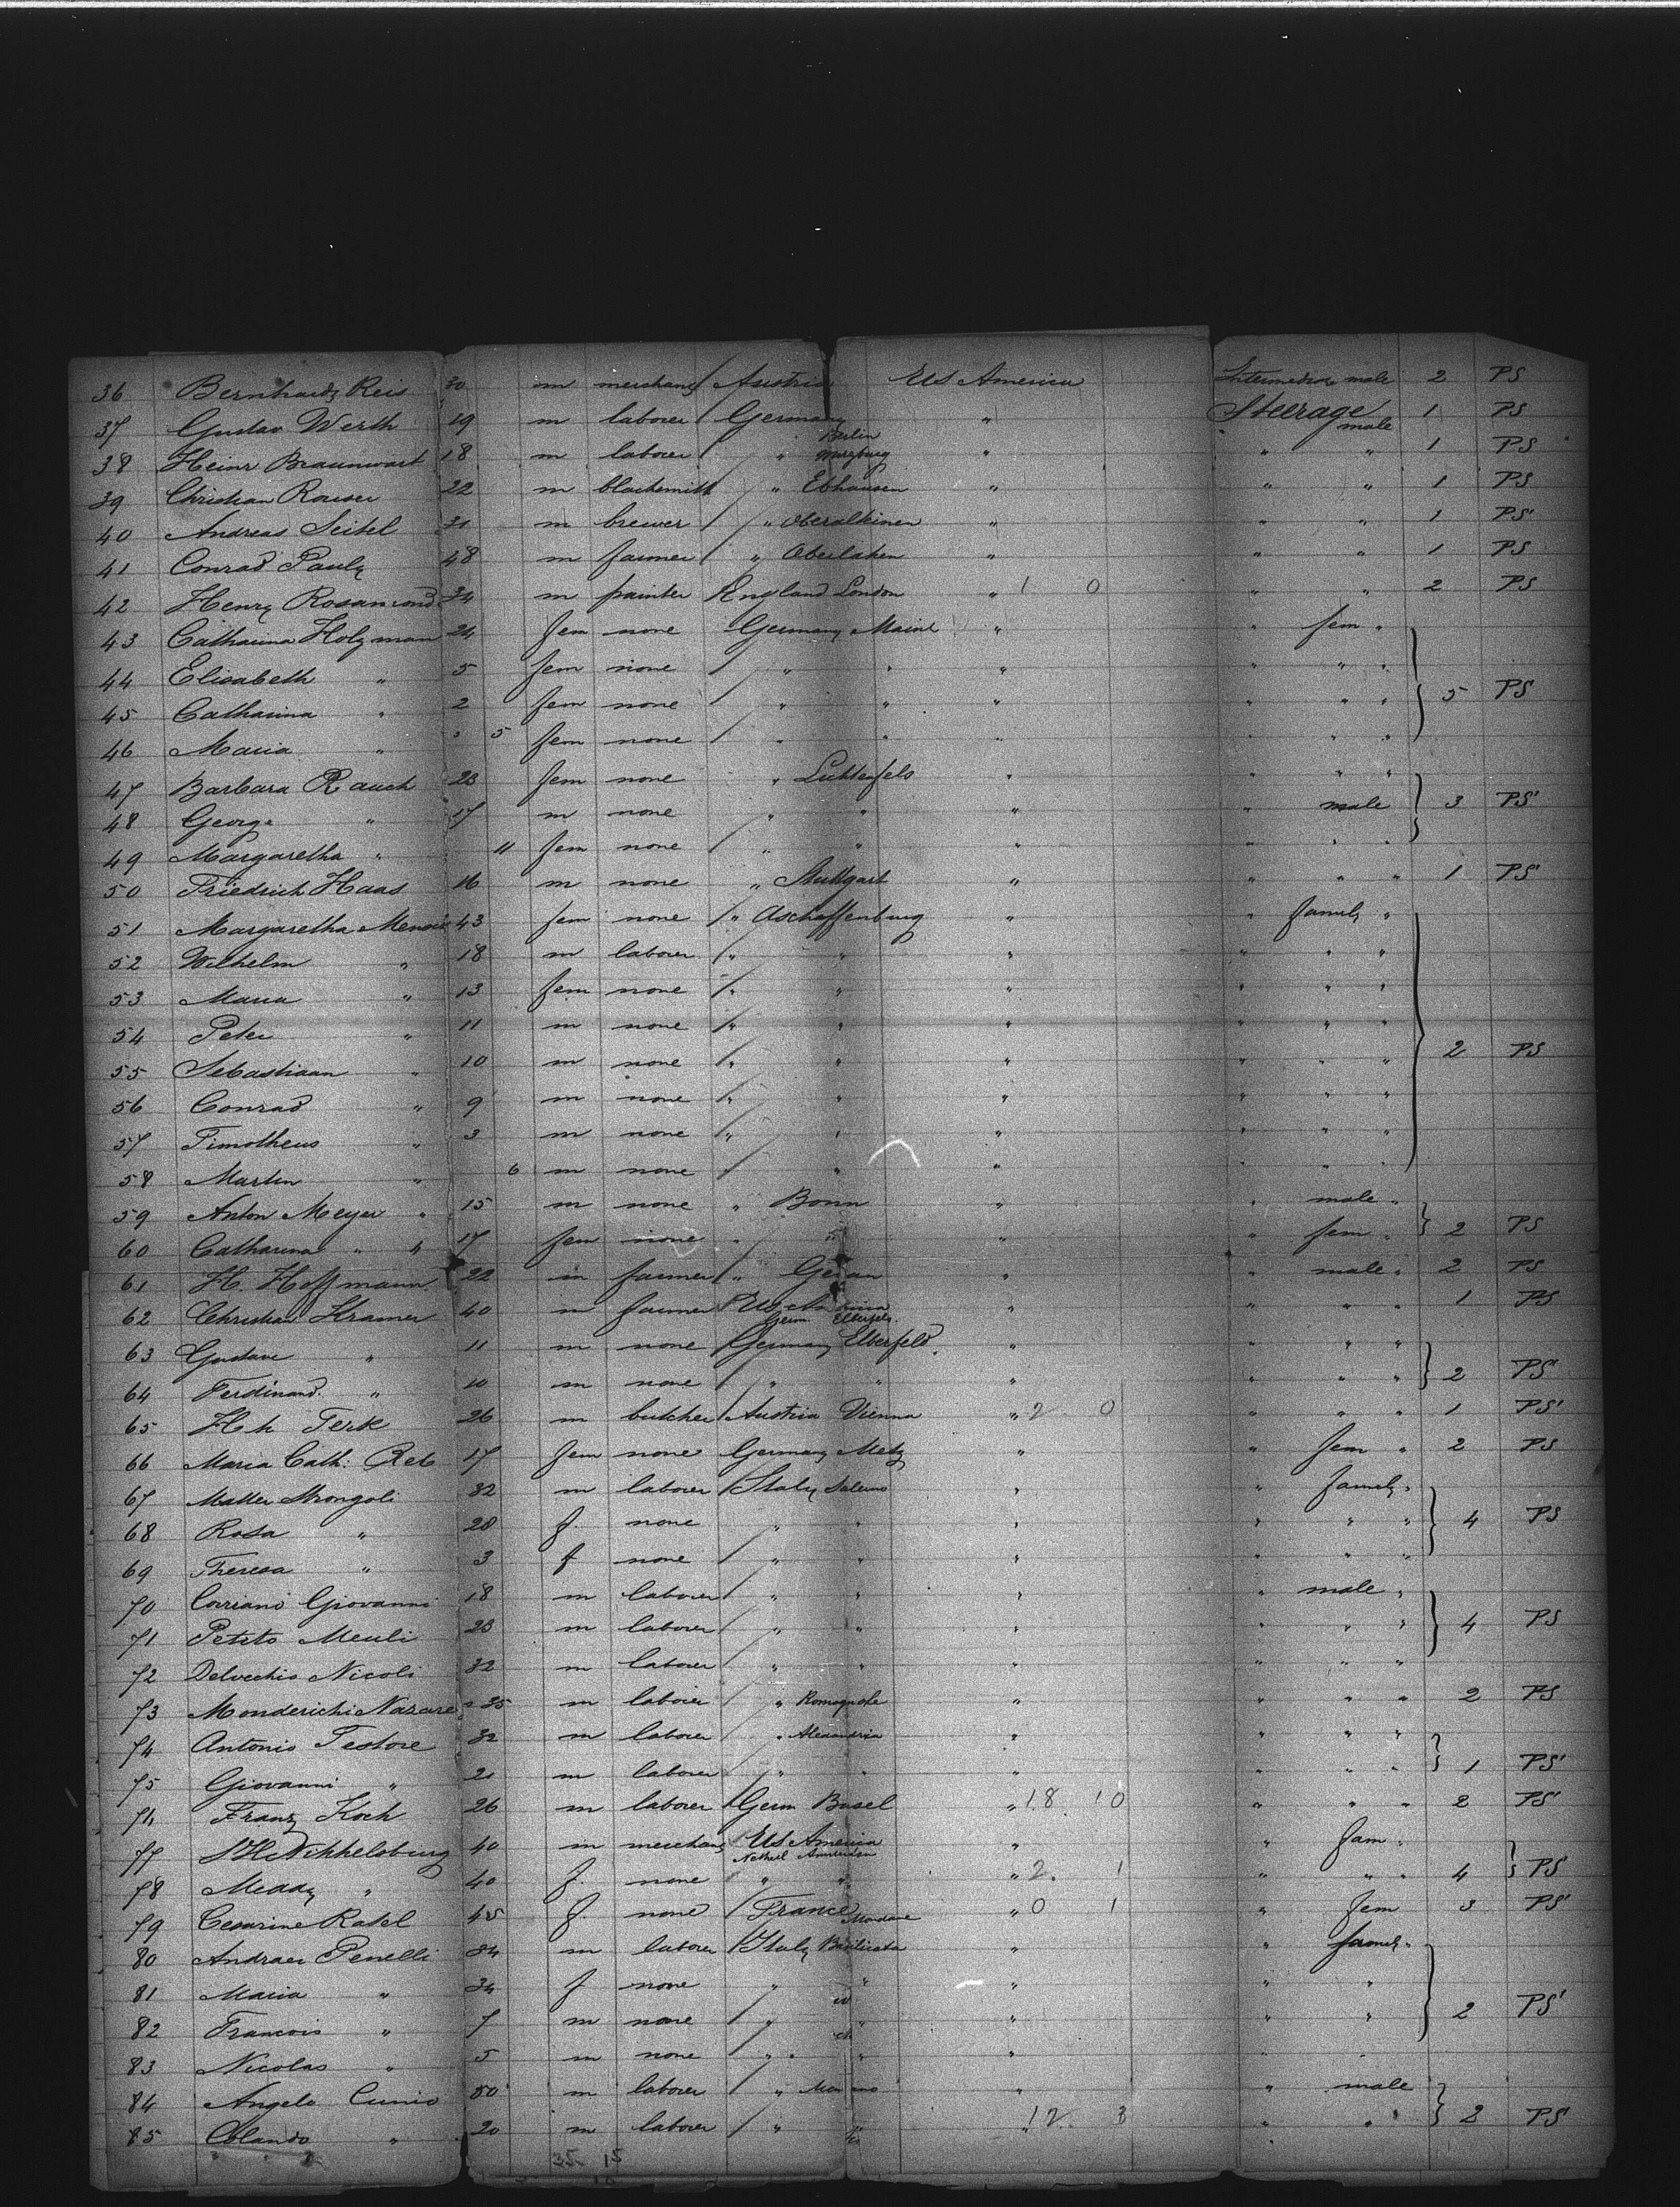 36 Bernhardt Reis 30 m merchant Austria US America Intermediate male 2 PS
37 Gustav Werth 19 m laborer Germany Berlin " Steerage male 1 PS
38 Heinr Braunwart 18 m laborer " " " " 1 PS
39 Christian Rouser 22 m blacksmith " Ebhausen " " " 1 PS
40 Andreas Seitel 31 m brewer " " " " 1 PS
41 Conrad Pauly 48 m farmer " " " " 1 PS
42 Henry Rosamond 34 m painter England London " 1 0 " " 2 PS
43 Catharina Holzman 24 fem none Germany Mainz " " fem "
44 Elisabeth " 5 fem none " " " " " "
45 Catharina " 2 fem none " " " " " " 5 PS
46 Maria " 5 fem none " " " " " "
47 Barbara Rauch 23 fem none " Lichtenfels " " " "
48 George " 17 m none " " " " male 3 PS
49 Margaretha " 11 fem none " " " " " "
50 Friedrich Haas 16 m none " Stuttgart " " " " 1 PS
51 Margaretha 43 fem none " Aschaffenburg " " family "
52 Wilhelm " 18 m laborer " " " " " "
53 Maria " 13 fem none " " " " " "
54 Peter " 11 m none " " " " " "
55 Sebastiaan " 10 m none " " " " " " 2 PS
56 Conrad " 9 m none " " " " " "
57 Timotheus " 3 m none " " " " " "
58 Martin " 6 m none " " " " " "
59 Anton Meyer " 15 m none " Bonn " " male "
60 Catharina " " 17 fem none " " " " fem " 2 PS
61 H. Hoffmann 22 m farmer " " " male " 2 PS
62 Christian Kramer 40 m farmer US America Germ. Elberfeld " " " " 1 PS
63 Gustave " 11 m none Germany Elberfeld " " " "
64 Ferdinand " 10 m none " " " " " " 2 PS
65 H h Terk 26 m butcher Austria Vienna " 2 0 " " " 1 PS
66 Maria Cath: Reb 17 fem none Germany Metz " " fem " 2 PS
67 Strongoli 32 m laborer Italy Salerno " " family "
68 Rosa " 28 f. none " " " " " " 4 PS
69 Theresa " 3 f none " " " " " "
70 Corriano Giovanni 18 m laborer " " " " male "
71 Petito Meuli 23 m laborer " " " " " " 4 PS
72 Delvecchio Nicoli 32 m laborer " " " " " "
73 Monderichi Nazare 35 m laborer " " " " " 2 PS
74 Antonio Testore 32 m laborer " Alexandria " " " "
75 Giovanni " 21 m laborer " " " " " " 1 PS
76 Franz Koch 26 m laborer Germ Basel " 18 10 " " " 2 PS
77 40 m merchant US America Netherl Amsterdam " " fam "
78 Meddy " 40 f. none " " " 2. 1 " " " 4 PS
79 Cesarine Ratel 45 f. none France " 0 1 " fem 3 PS
80 Andraei Penelli 34 m laborer Italy Basilicata " " family "
81 Maria " 34 f none " " " " "
82 Francois " 7 m none " " " " " 2 PS
83 Nicolas " 5 m none " " " " "
84 Angelo Cunio 50 m laborer " " " male
85 Colando " 20 m laborer " " 12 3 " " 2 PS